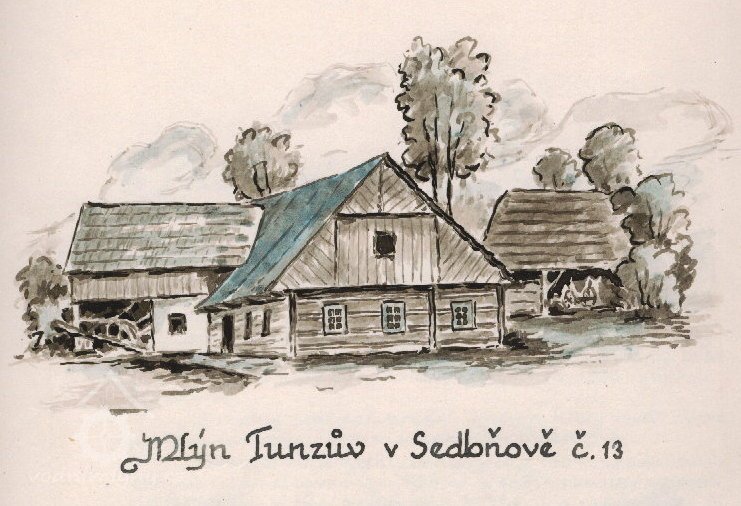 Mlýn Tunzův v Sedbňově č. 13